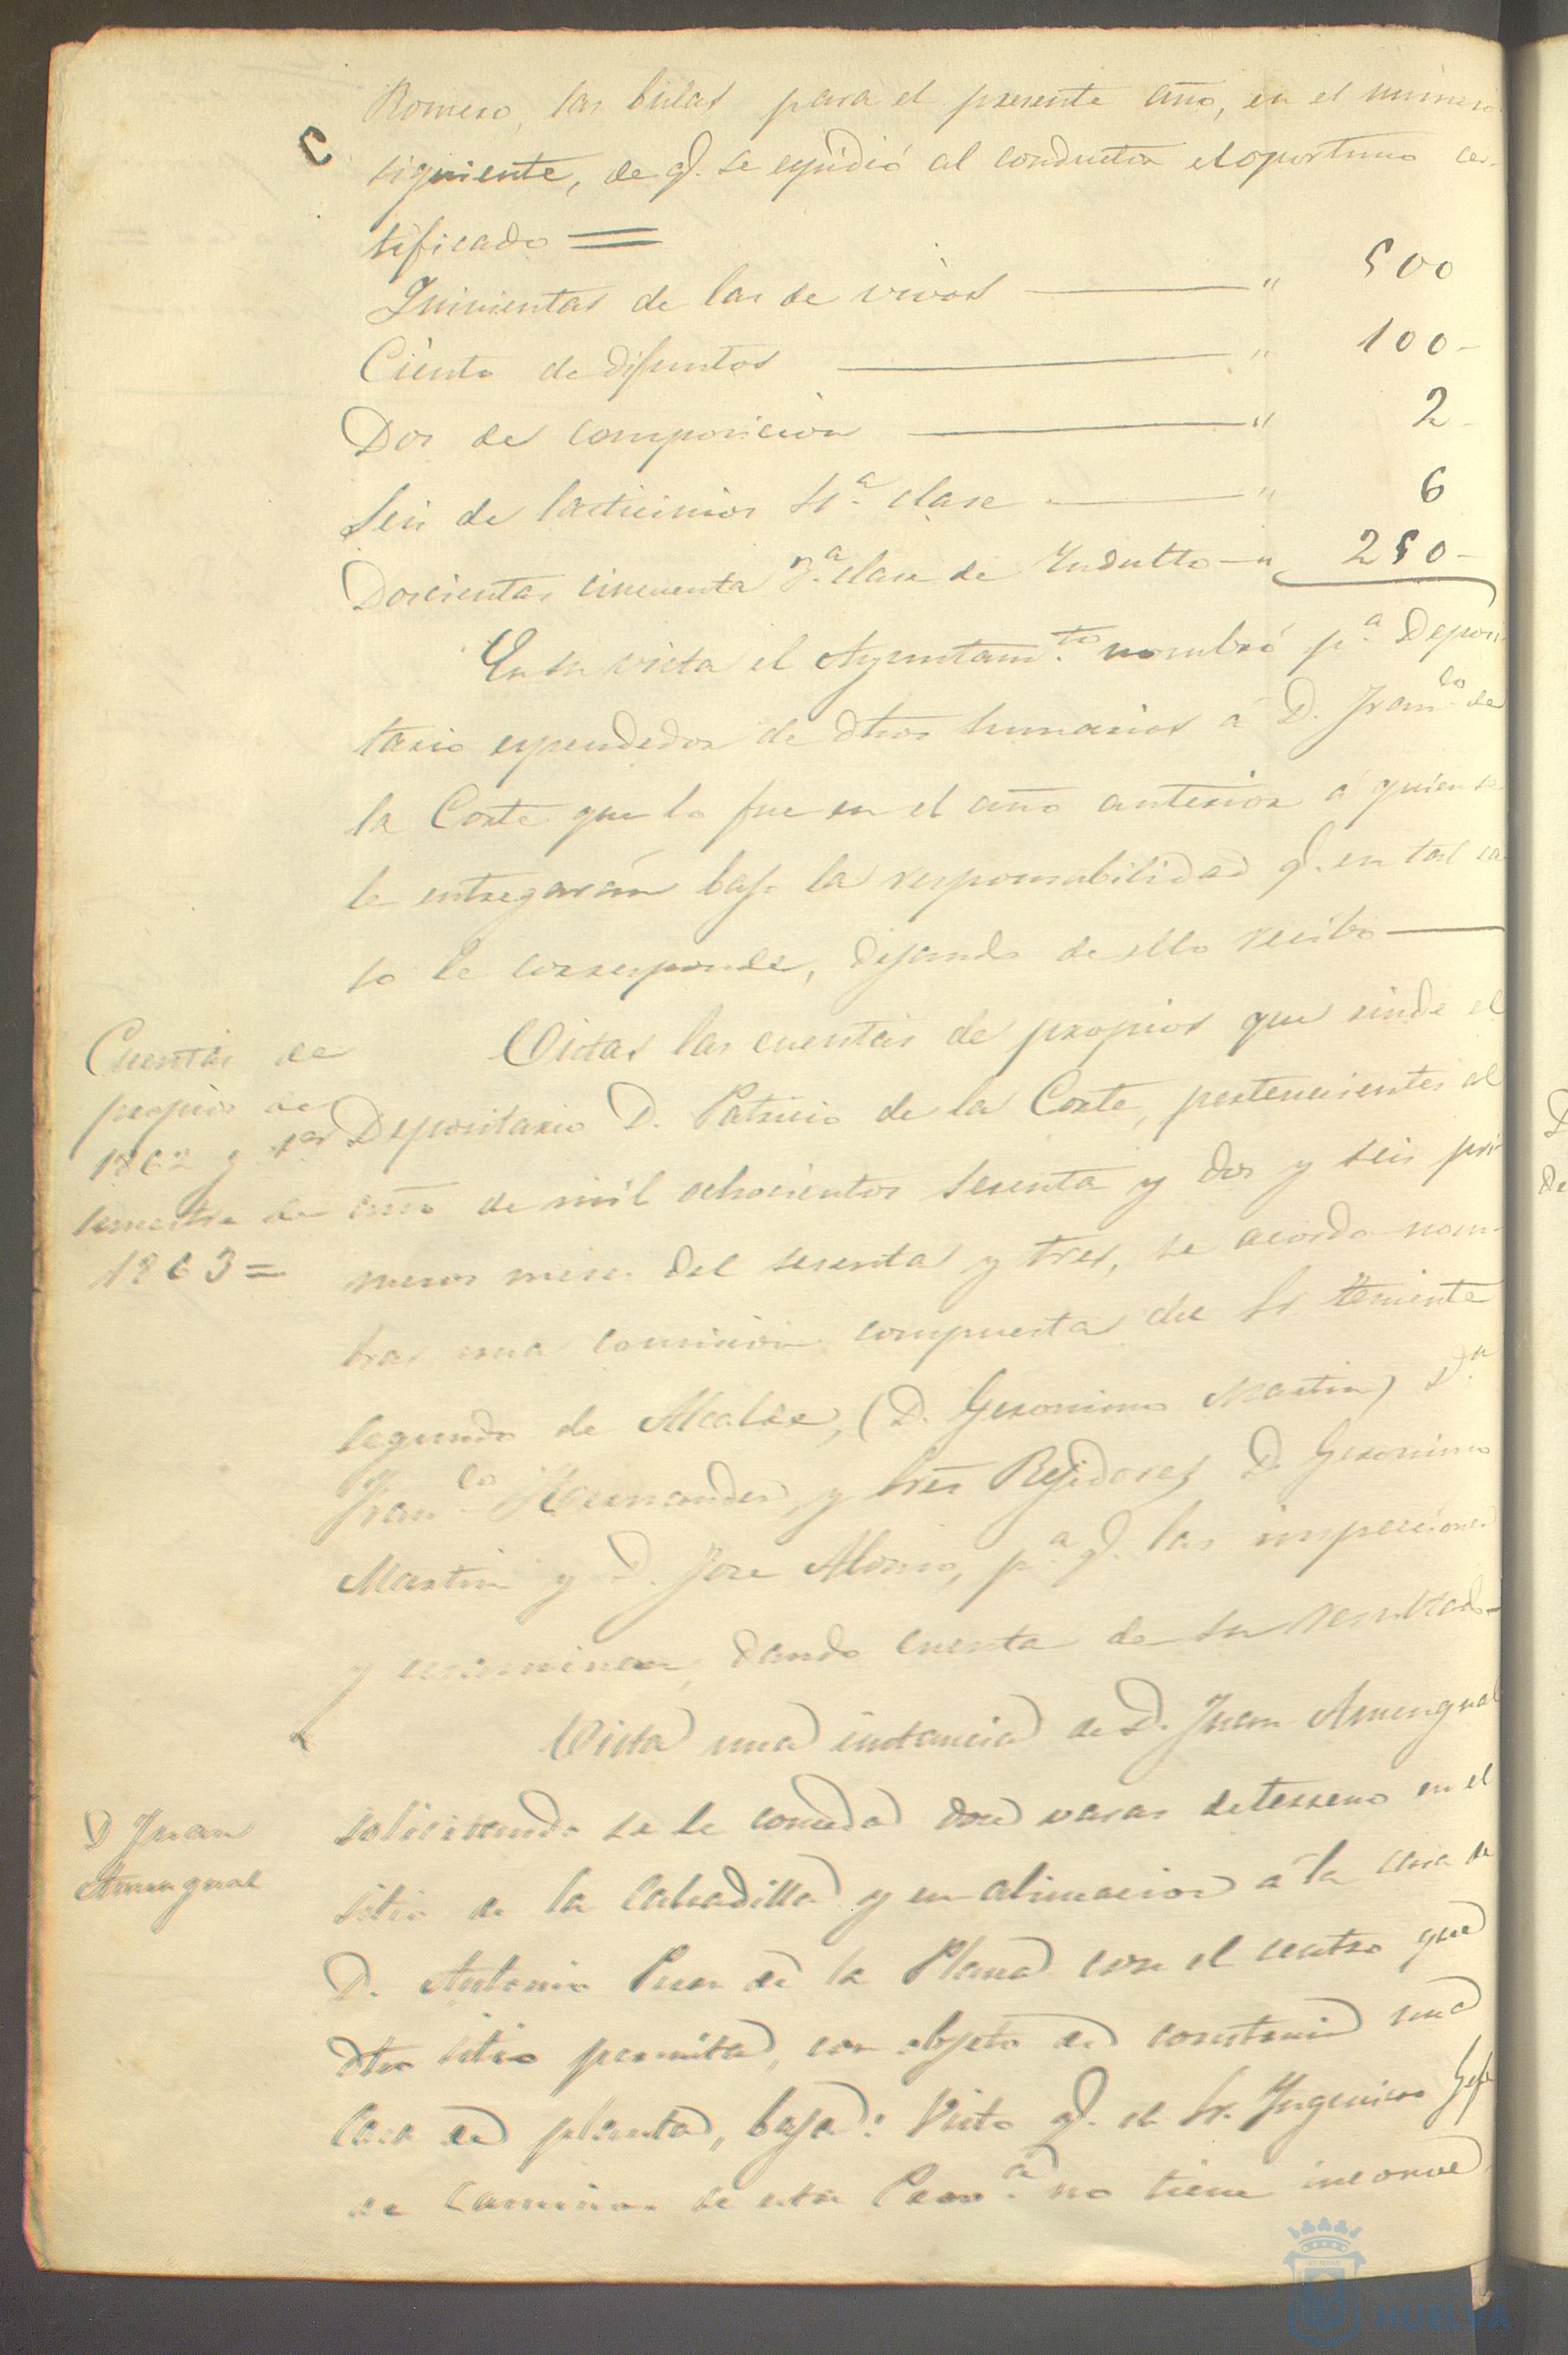 Romero, las bulas para el presente año, en el numero
siguiente, de q.e se espidió al conductor el oportuno cer-
tificado =
Quinientas de las de vivos — " 500
Ciento de difuntos — " 100-
Dos de composicion — " 2-
Seis de lacticinios 4.a clase — " 6
Doscientas cincuenta 3.a clase de Yndulto — " 250-
En su vista el Ayuntam.to nombró p.a Deposi
tario espendedor de dhos sumarios á D. Fran.co de
la Corte que lo fue en el año anterior á quien se
le entregarán bajo la responsabilidad q.e en tal ca
so le corresponde, dejando de ello recibo —
Cuentas de
propios de
1862 y 1.er
semestre de
1863 =
Vistas las cuentas de propios que rinde el
Depositario D. Patricio de la Corte, pertenecientes al
año de mil ochocientos sesenta y dos y seis pri
meros meses del sesenta y tres, se acordo nom
brar una comision compuesta del Sr. teniente
segundo de Alcalde, (D. Geronimo Martin) D.n
Fran.co Hernandez, y Sres Rejidores D. Geronimo
Martin y D. Jose Alonso, p.a q.e las inspeccionen
y examinen, dando cuenta de su resultado-
D Juan
Amengual
Vista una instancia de D. Juan Amengual
solicitando se le conceda doce varas de terreno en el
sitio de la Calzadilla y en alineacion á la casa de
D. Antonio de la con el centro que
dho sitio permita, con objeto de construir una
casa de planta, baja: Visto q.e el Sr. Yngeniero Gefe
de Caminos de esta Prov.a no tiene inconve
HUELVA